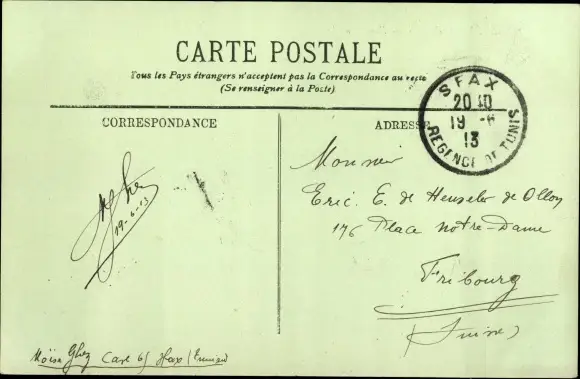 CARTE POSTALE
Tous les Pays étrangers n'acceptent pas la Correspondance au recto
(Se renseigner à la Poste)
CORRESPONDANCE
ADRESSE
SFAX
20 40
19 -6
13
REGENCE DE TUNIS
Monsieur
Eric. E. de Henseler de
176 Place Notre-Dame
Fribourg
(Suisse)
19-6-13
Moïse Ghez Sfax